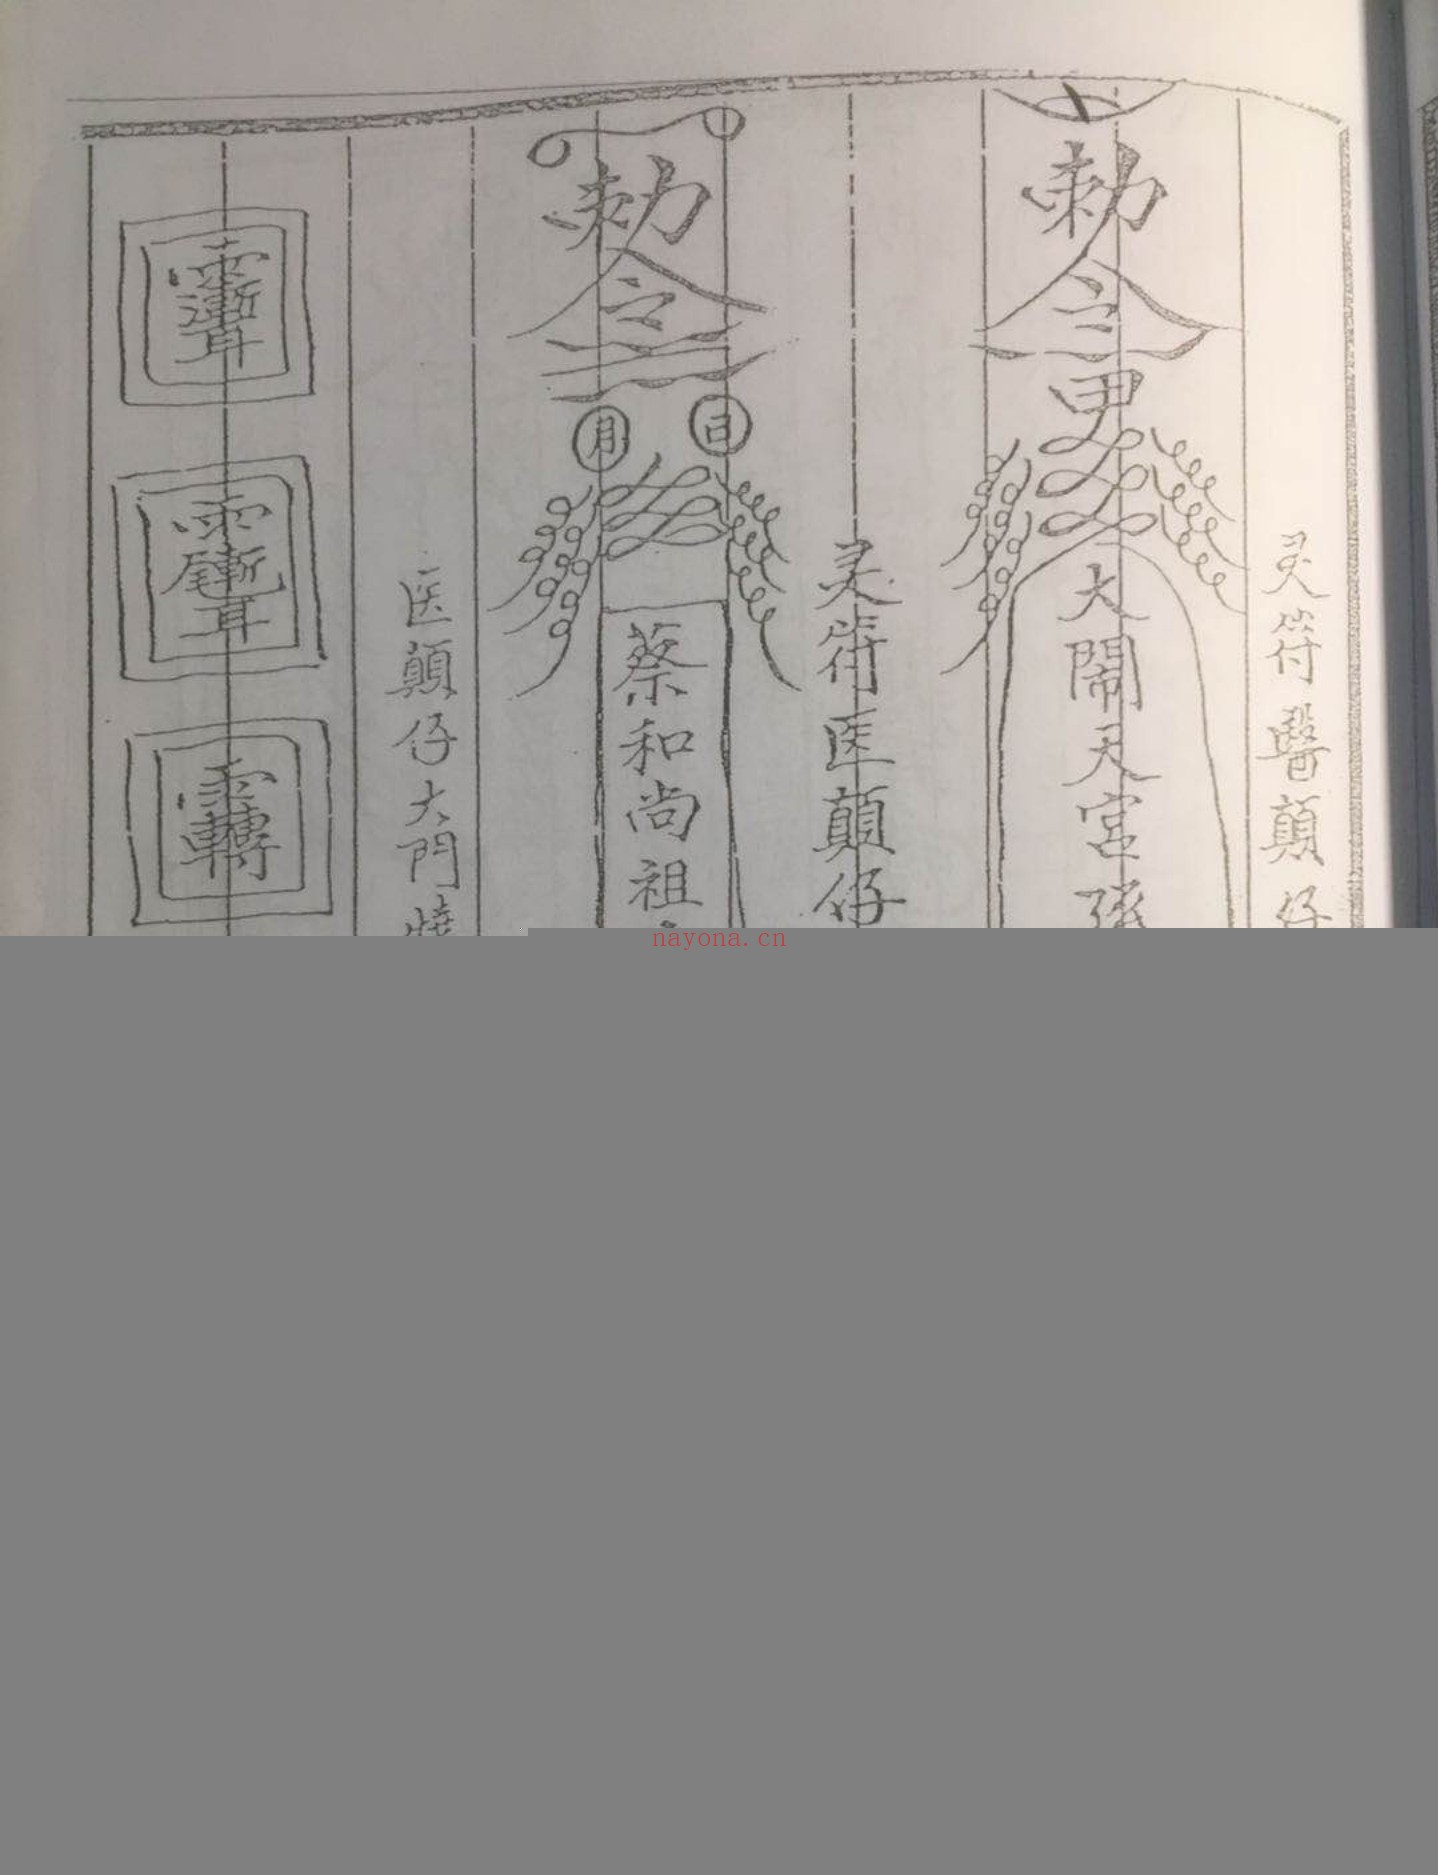 灵符醫顛仔
勅令
甲
大鬧天宮孫
灵符医顛仔
勅令
日
月
蔡和尚祖
医顛仔大門燒
nayona.cn